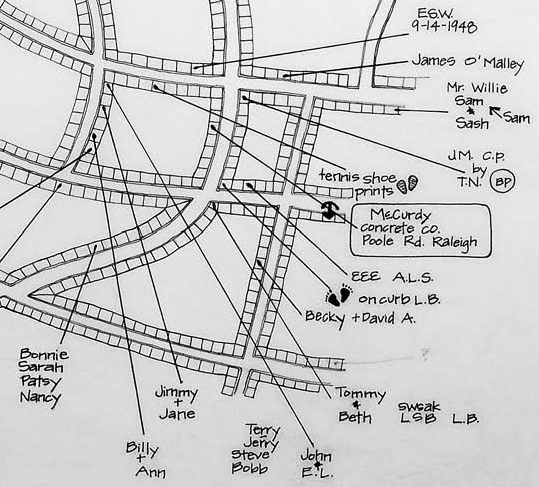 E.G.W.
9-14-1948
James O'Malley
Mr. Willie
Sam
*
Sash
Sam
J.M. C.P.
by
T.N. BP
tennis shoe
prints
McCurdy
concrete co.
Poole Rd. Raleigh
EEE A.L.S.
on curb L.B.
Becky + David A.
Bonnie
Sarah
Patsy
Nancy
Jimmy
+
Jane
Billy
+
Ann
Terry
Jerry
Steve
Bobb
John
&
E.L.
Tommy
&
Beth
swsak
LSB L.B.